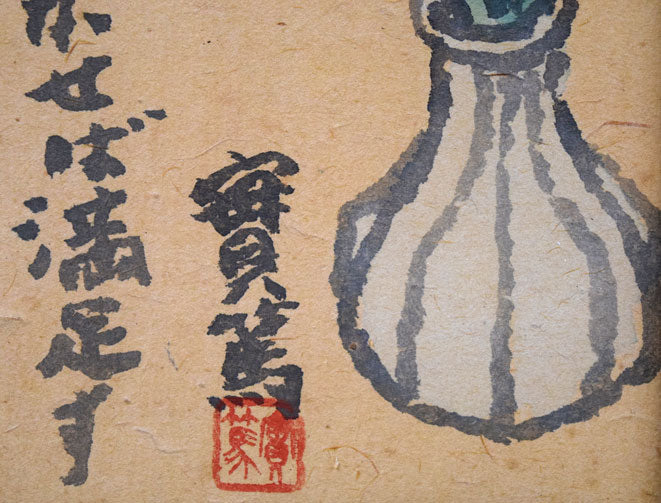 かせば満足す
實篤
實篤